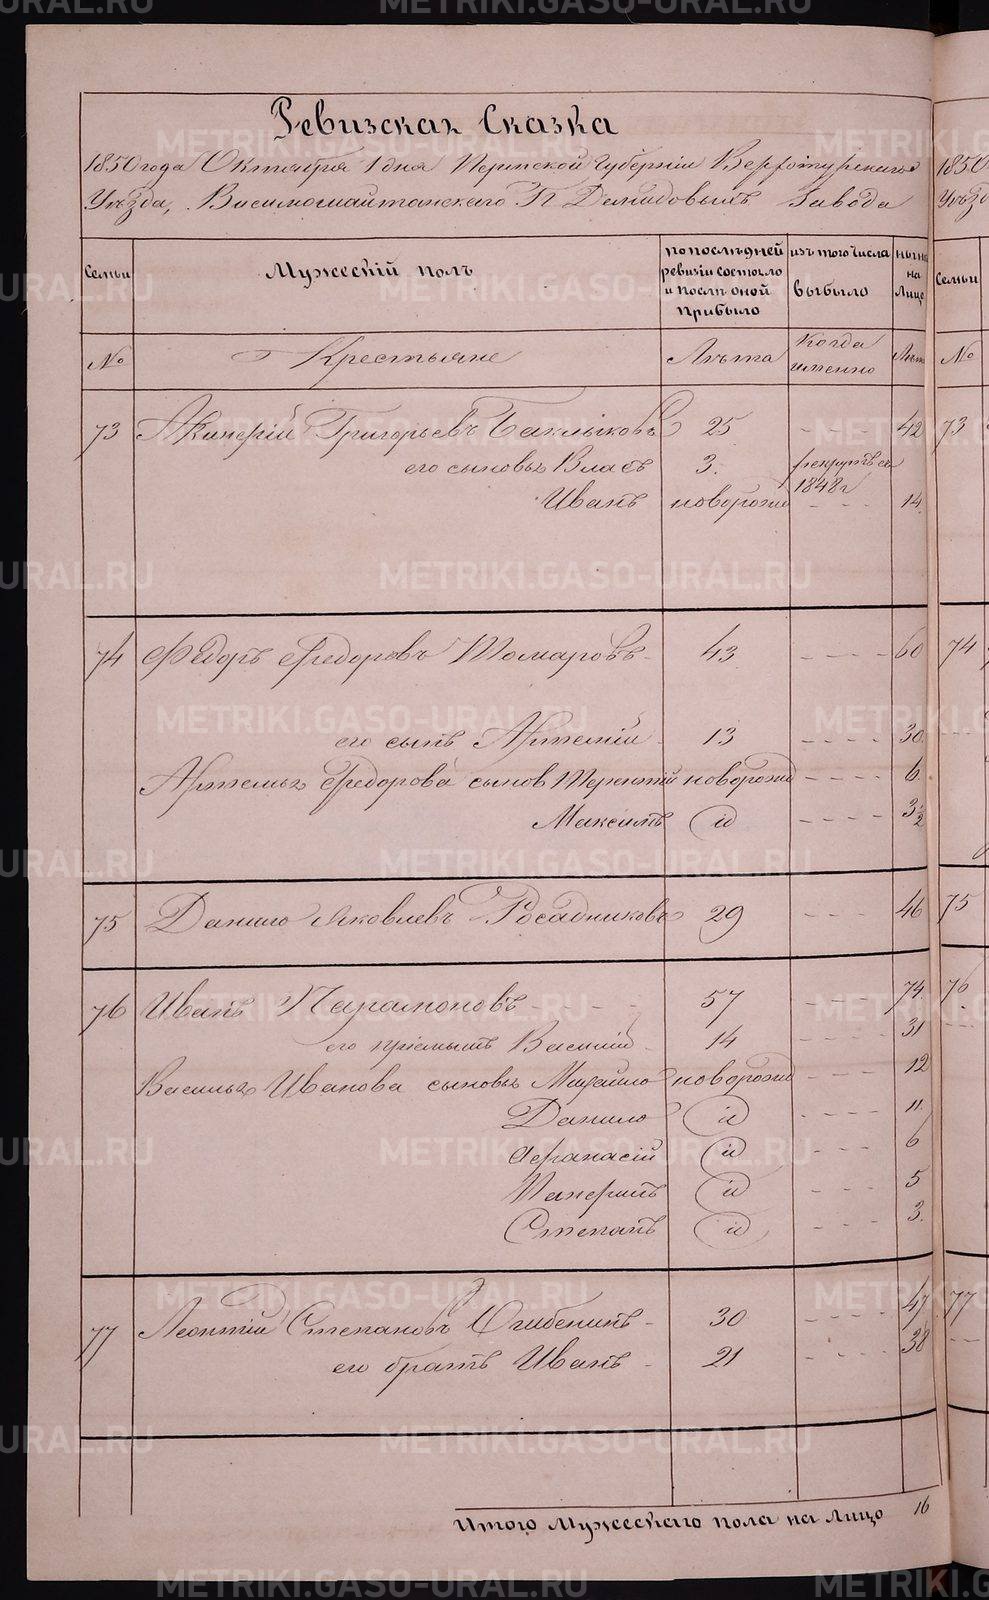 Ревизская Сказка
1850 года Октября 1 дня Пермской Губернiи Верхотурскаго
Уѣзда, Висимошайтанскаго П Демидовыхъ Завода
Семьи Мужескiй полъ по послѣдней ревизiи состояло и послѣ оной прибыло изъ того числа выбыло нынѣ на лице
№ Крестьяне Лѣта Когда именно Лѣта
73 Григорьевъ Баклыковъ 25 - - - 42
его сыновья Власъ 3. рекрутъ съ 1848 г
Иванъ новорожд - - - 14.
74 Ѳедоръ Ѳедоровъ Томаровъ 43 - - - - 60
его сынъ Артемiй 13 - - - - 30.
Артемья Ѳедорова сынов Терентiй новорожд - - - - 6.
Максимъ id - - - - 3 1/2
75 Данило Яковлевъ Росадниковъ 29 - - - 46
76 Иванъ Парамоновъ 57 - - - 74.
его прiемышъ Василiй 14 - - - - 31
Василья Иванова сыновья Михайло новорожд - - - - 12
Данило id - - - - 11.
Афанасiй id - - - - 6
id - - - - 5
Степанъ id - - - - 3.
77 Леонтiй Степановъ Огибенинъ 30 - - - - 47
его братъ Иванъ 21 - - - - 38
Итого Мужескаго пола на Лицо 16
1850
Уѣзд
Семьи
№
73
74
75
76
77
METRIKI.GASO-URAL.RU